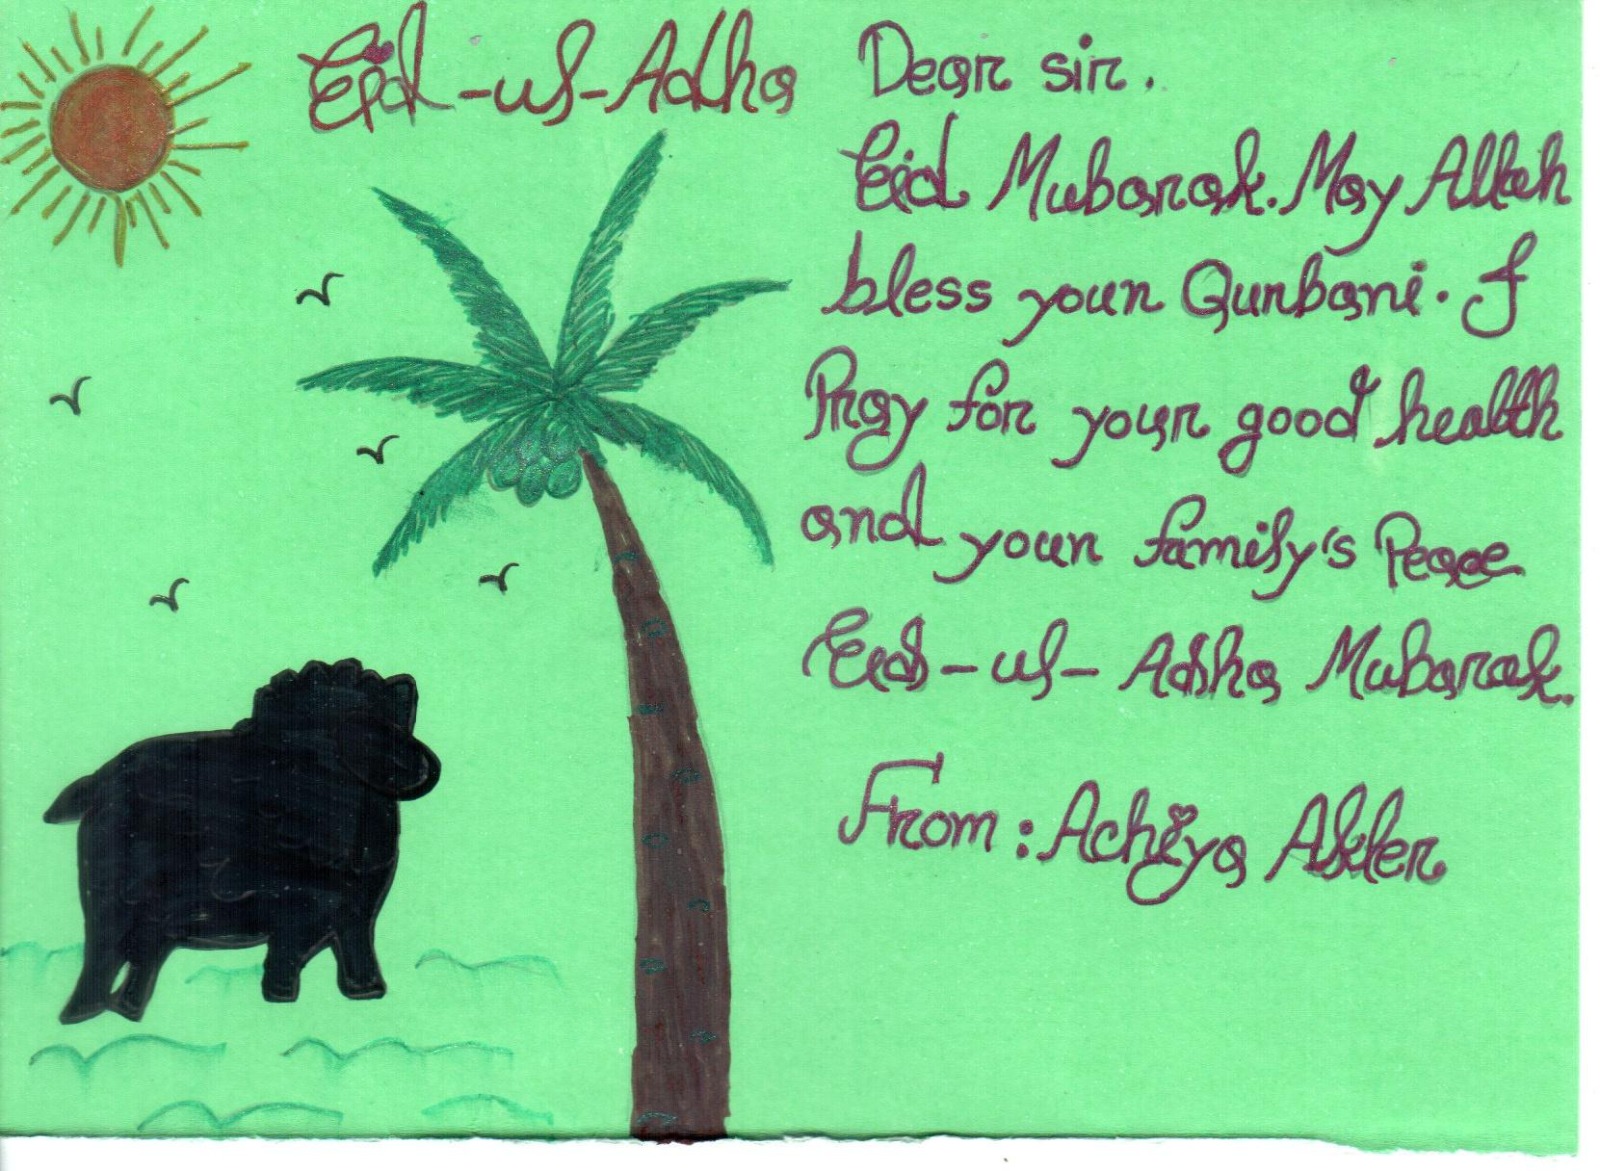 Eid-ul-Adha
Dear sir.
Eid Mubarak. May Allah
bless your Qurbani. I
Pray for your good health
and your family's Peace
Eid-ul-Adha Mubarak.
From: Achiya Akter